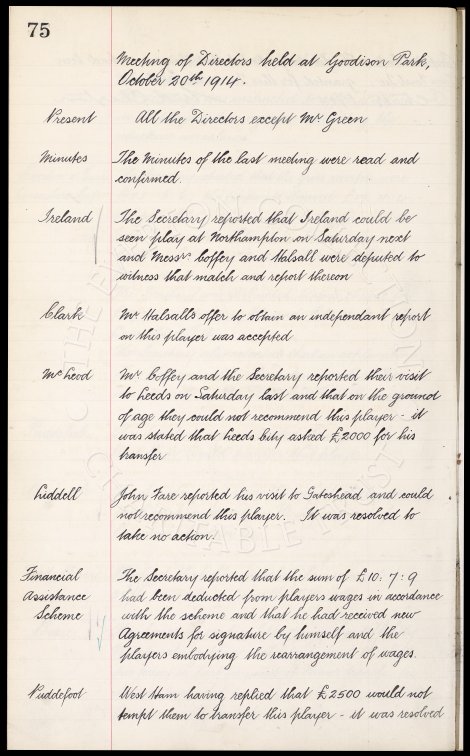 75
Meeting of Directors held at Goodison Park,
October 20th 1914.
Present All the Directors except Mr Green
Minutes The Minutes of the last meeting were read and
confirmed.
Ireland The Secretary reported that Ireland could be
seen play at Northampton on Saturday next
and Messrs Coffey and Halsall were deputed to
witness that match and report thereon
Clark Mr Halsall's offer to obtain an independant report
on this player was accepted
McLeod Mr Coffey and the Secretary reported their visit
to Leeds on Saturday last and that on the ground
of age they could not recommend this player - it
was stated that Leeds City asked £2000 for his
transfer
Liddell John Fare reported his visit to Gateshead and could
not recommend this player. It was resolved to
take no action.
Financial The Secretary reported that the sum of £10: 7: 9
Assistance had been deducted from players wages in accordance
Scheme with the scheme and that he had received new
Agreements for signature by himself and the
players embodying the rearrangement of wages.
Puddefoot West Ham having replied that £2500 would not
tempt them to transfer this player - it was resolved